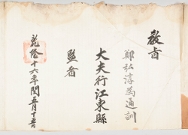 教旨
鄭私淳爲通訓
大夫行江東縣
監者
乾隆十六年閏五月十二日